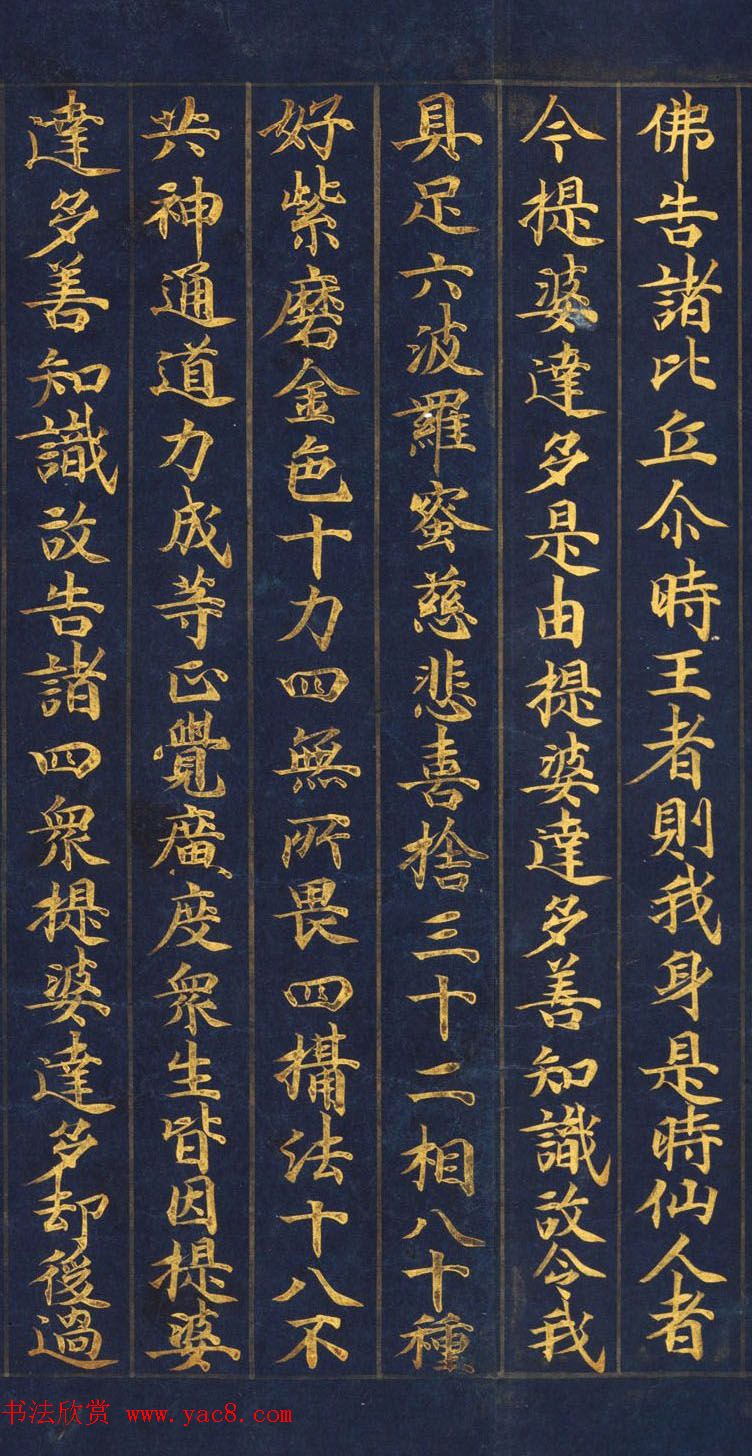 佛告諸比丘尒時王者則我身是時仙人者
今提婆達多是由提婆達多善知識故令我
具足六波羅蜜慈悲喜捨三十二相八十種
好紫磨金色十力四無所畏四攝法十八不
共神通道力成等正覺廣度衆生皆因提婆
達多善知識故告諸四衆提婆達多却後過
书法欣赏 www.yac8.com